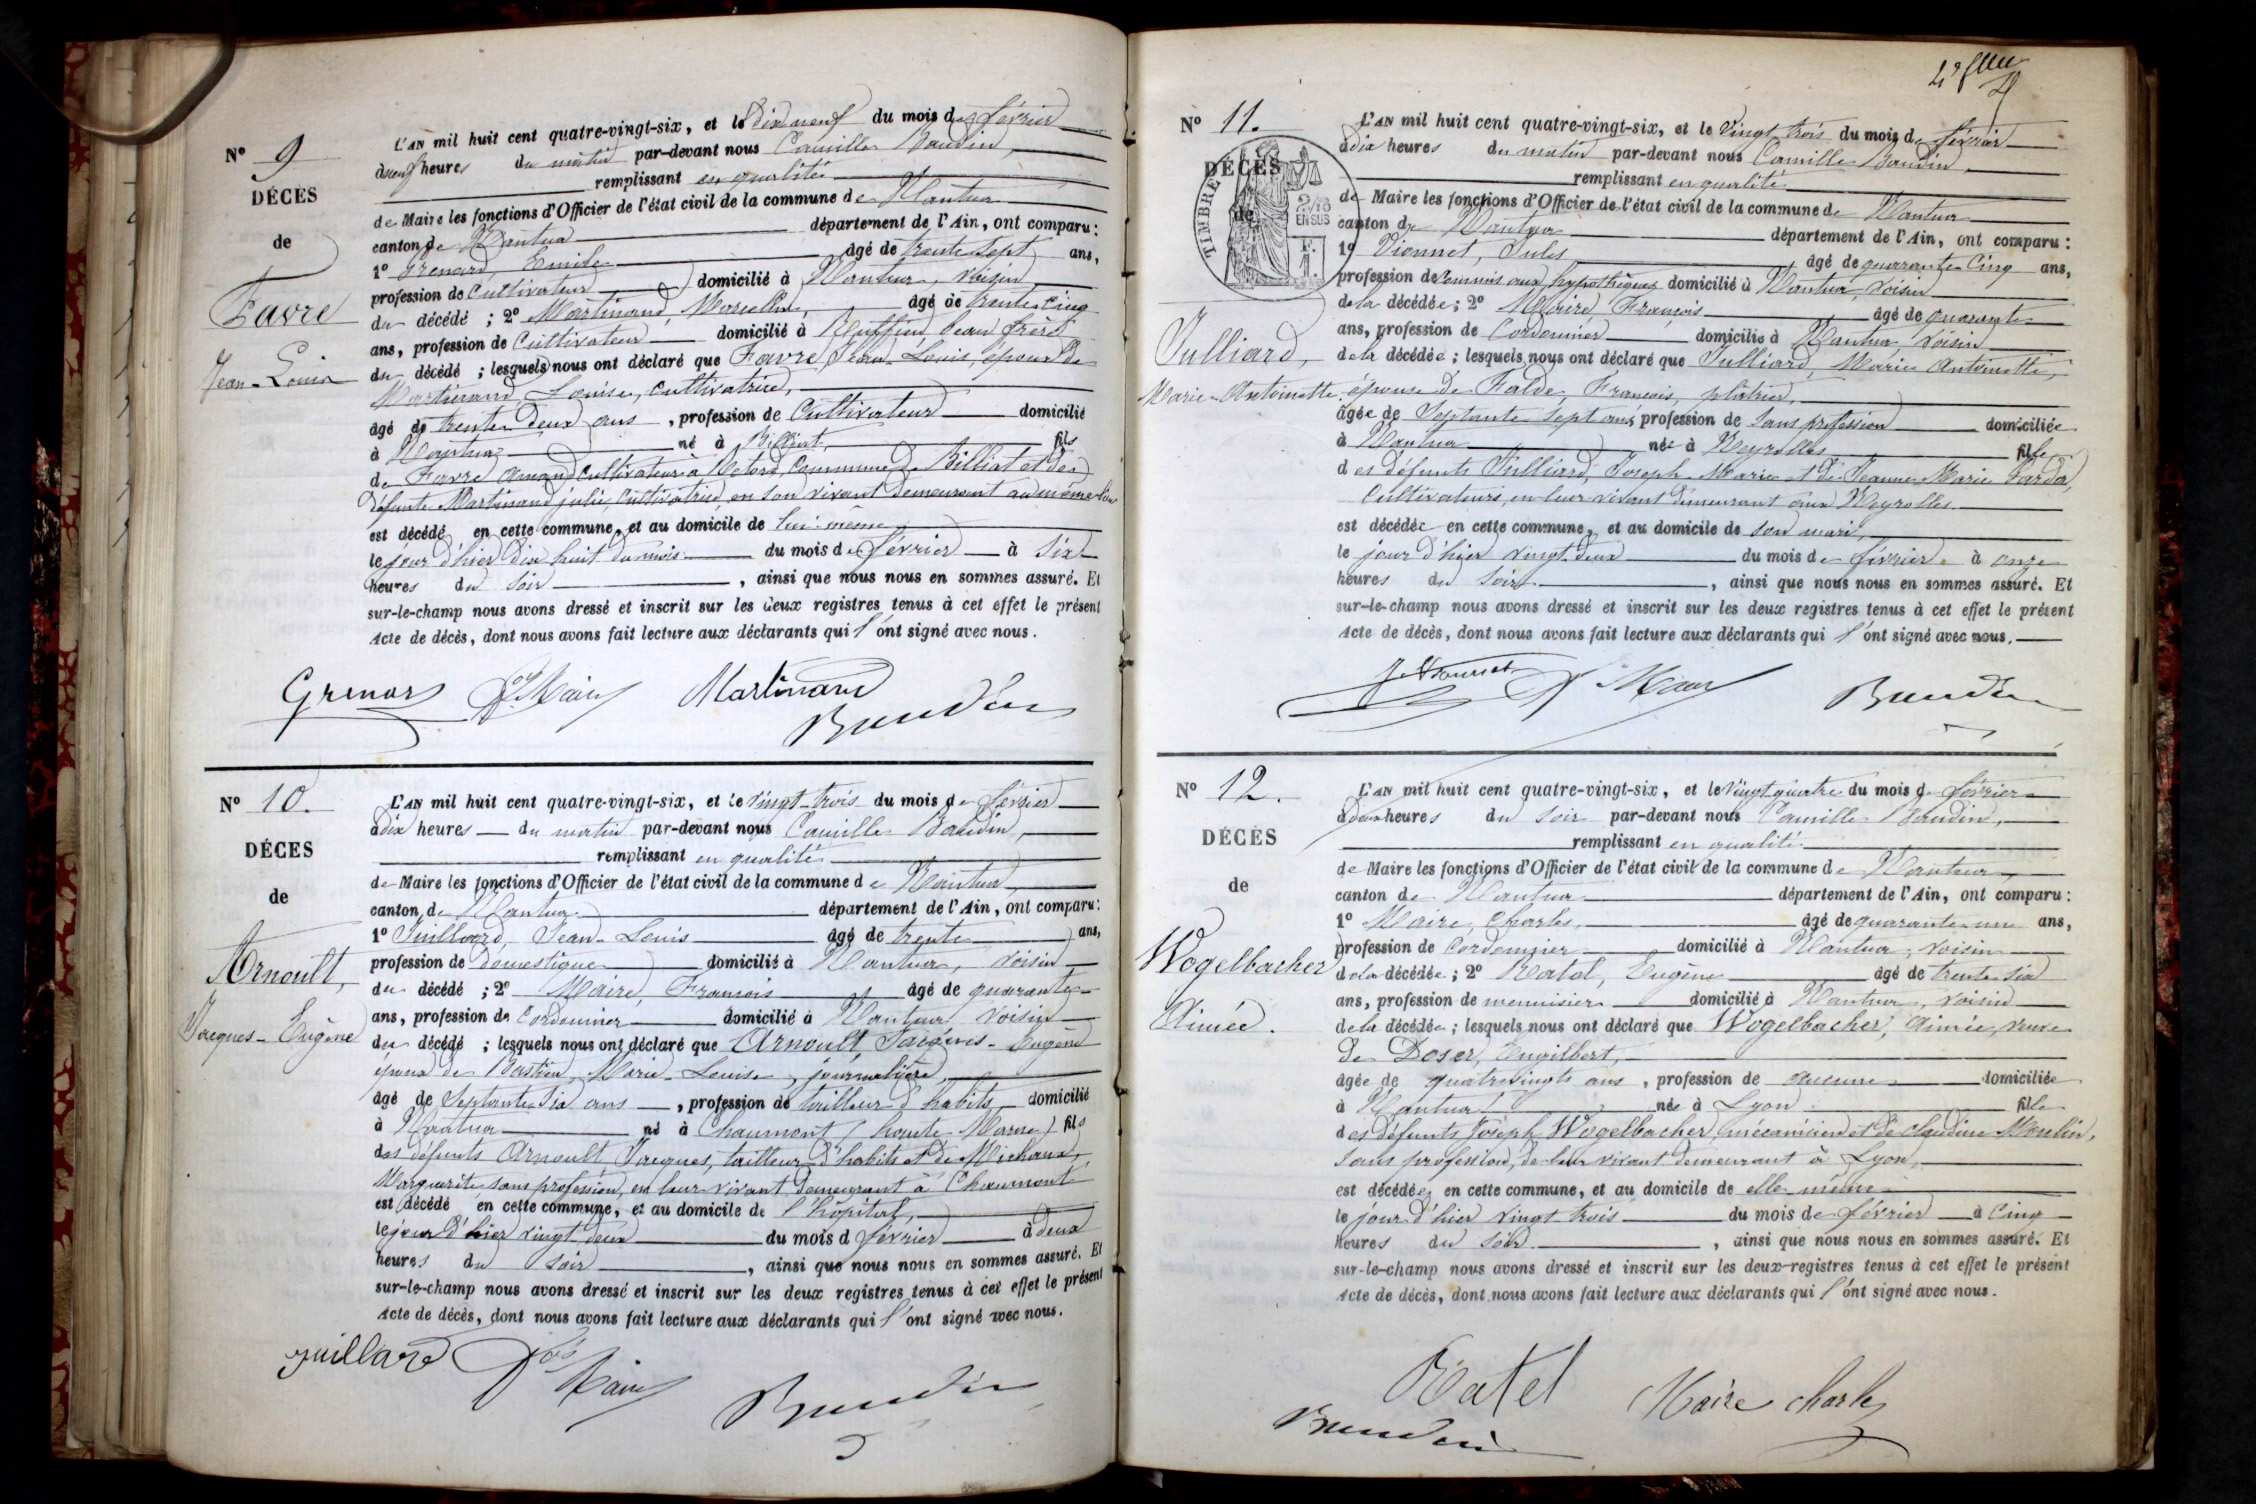 N° 9
DÉCES
de
Favre
Jean-Louis
L'AN mil huit cent quatre-vingt-six, et le Dix neuf du mois de février
à neuf heures du matin par-devant nous Camille Baudin,
remplissant en qualité
de Maire les fonctions d'Officier de l'état civil de la commune de Nantua
canton de Nantua département de l'Ain, ont comparu :
1° Grenard, Emile âgé de trente sept ans,
profession de Cultivateur domicilié à Nantua, voisin
du décédé ; 2° Martinand, Marcelin, âgé de trente cinq
ans, profession de Cultivateur domicilié à Ruffieu, beau frère
du décédé ; lesquels nous ont déclaré que Favre Jean Louis, époux de
Martinand, Louise, cultivatrice,
âgé de trente deux ans, profession de Cultivateur domicilié
à Nantua né à Billiat, fils
de Favre Amand Cultivateur à Retord Commune de Billiat et de
défunte Martinand julie, Cultivatrice, en son vivant demeurant au même lieu
est décédé en cette commune, et au domicile de lui-même,
le jour d'hier dix huit du mois du mois de février à six
heures du soir, ainsi que nous nous en sommes assuré. Et
sur-le-champ nous avons dressé et inscrit sur les deux registres tenus à cet effet le présent
Acte de décès, dont nous avons fait lecture aux déclarants qui l'ont signé avec nous.
Grenard Fs Maire Martinand
Baudin
N° 10.
DÉCES
de
Arnoult,
Jacques-Eugène
L'AN mil huit cent quatre-vingt-six, et le vingt-trois du mois de février
à dix heures du matin par-devant nous Camille Baudin,
remplissant en qualité
de Maire les fonctions d'Officier de l'état civil de la commune de Nantua
canton de Nantua département de l'Ain, ont comparu :
1° Juillard, Jean-Louis âgé de trente ans,
profession de domestique domicilié à Nantua, voisin
du décédé ; 2° Maire, François âgé de quarante
ans, profession de Cordonnier domicilié à Nantua voisin
du décédé ; lesquels nous ont déclaré que Arnoult Jacques-Eugène
époux de Bastien, Marie-Louise, journalière,
âgé de Septante six ans, profession de tailleur d'habits domicilié
à Nantua né à Chaumont (haute Marne) fils
des défunts Arnoult Jacques, tailleur d'habits et de Michaux,
Marguerite sans profession, en leur vivant demeurant à Chaumont
est décédé en cette commune, et au domicile de l'hôpital,
le jour d'hier vingt deux du mois d février à deux
heures du soir, ainsi que nous nous en sommes assuré. Et
sur-le-champ nous avons dressé et inscrit sur les deux registres tenus à cet effet le présent
Acte de décès, dont nous avons fait lecture aux déclarants qui l'ont signé avec nous.
juillard Fs Maire
Baudin
N° 11.
DÉCES
de
TIMBRE
2/10 EN SUS
Julliard,
Marie-Antoinette
L'AN mil huit cent quatre-vingt-six, et le Vingt trois du mois de février
à dix heures du matin par-devant nous Camille Baudin,
remplissant en qualité
de Maire les fonctions d'Officier de l'état civil de la commune de Nantua
canton de Nantua département de l'Ain, ont comparu :
1° Vionnet, Jules âgé de quarante Cinq ans,
profession de Commis aux hypothèques domicilié à Nantua, voisin
de la décédée ; 2° Maire, François âgé de quarante
ans, profession de Cordonnier domicilié à Nantua voisin
de la décédée ; lesquels nous ont déclaré que Julliard, Marie Antoinette,
épouse de Falde, François, plâtrier,
âgée de Septante sept ans, profession de Sans profession domiciliée
à Nantua née à Neyrolles fille
des défunts Julliard, Joseph-Marie et de Jeanne-Marie
Cultivateurs, en leur vivant demeurant aux Neyrolles.
est décédée en cette commune, et au domicile de son mari,
le jour d'hier vingt-deux du mois de février à onze
heures du soir, ainsi que nous nous en sommes assuré. Et
sur-le-champ nous avons dressé et inscrit sur les deux registres tenus à cet effet le présent
Acte de décès, dont nous avons fait lecture aux déclarants qui l'ont signé avec nous.
J. Vionnet Fs Maire Baudin
N° 12.
DÉCES
de
Wogelbacher
Aimée.
L'AN mil huit cent quatre-vingt-six, et le Vingt quatre du mois de février
à deux heures du soir par-devant nous Camille Baudin,
remplissant en qualité
de Maire les fonctions d'Officier de l'état civil de la commune de Nantua,
canton de Nantua département de l'Ain, ont comparu :
1° Maire, Charles, âgé de quarante-un ans,
profession de Cordonnier domicilié à Nantua, voisin
de la décédée ; 2° Ratel, Eugène âgé de trente six
ans, profession de menuisier domicilié à Nantua, voisin
de la décédée ; lesquels nous ont déclaré que Wogelbacher, Aimée, veuve
de Doser, Engilbert,
âgée de quatrevingts ans, profession de aucune domiciliée
à Nantua née à Lyon fille
des défunts Joseph Wogelbacher, mécanicien et de Claudine Moulin,
sans profession, de leur vivant demeurant à Lyon,
est décédée en cette commune, et au domicile de elle-même
le jour d'hier vingt trois du mois de février à Cinq
heures du soir, ainsi que nous nous en sommes assuré. Et
sur-le-champ nous avons dressé et inscrit sur les deux registres tenus à cet effet le présent
Acte de décès, dont nous avons fait lecture aux déclarants qui l'ont signé avec nous.
Ratel Maire charles
Baudin